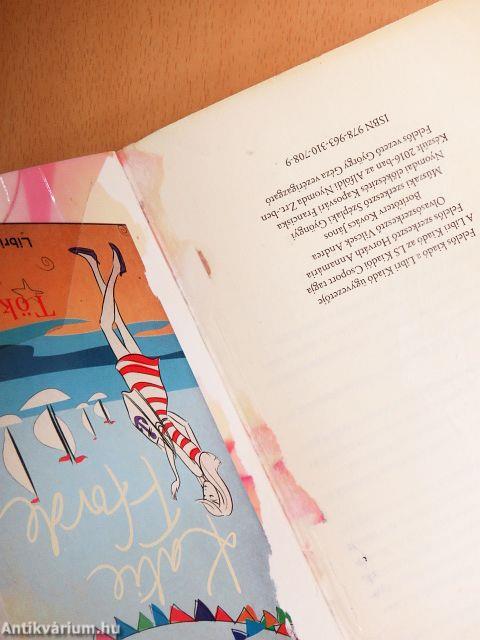 Felelős kiadó a Libri Kiadó ügyvezetője
A Libri Kiadó az LS Kiadói Csoport tagja
Felelős szerkesztő Horváth Annamária
Olvasószerkesztő Vilcsek Andrea
Borítóterv Kovács János
Műszaki szerkesztő Széplaki Gyöngyi
Nyomdai előkészítés Kaposvári Franciska
Készült 2016-ban az Alföldi Nyomda Zrt.-ben
Felelős vezető György Géza vezérigazgató
ISBN 978-963-310-708-9
Katie
Fforde
Tök
Libri
Antikvárium.hu